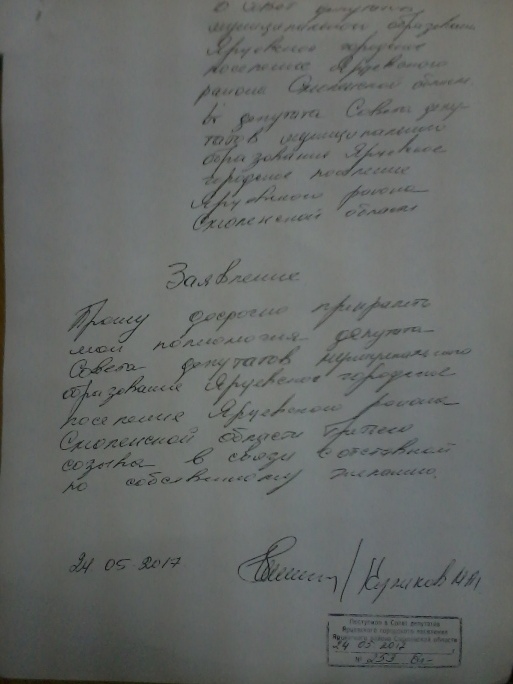 в Совет депутатов
муниципального образования
Ярцевское городское
поселение Ярцевского
района Смоленской области
от депутата Совета депу-
татов муниципального
образования Ярцевское
городское поселение
Ярцевского района
Смоленской области
Заявление
Прошу досрочно прекратить
мои полномочия депутата
Совета депутатов муниципального
образования Ярцевское городское
поселение Ярцевского района
Смоленской области третьего
созыва в связи с отставкой
по собственному желанию.
24 05 2017
Поступило в Совет депутатов
Ярцевского городского поселения
Ярцевского района Смоленской области
24 05 2017
№ 253